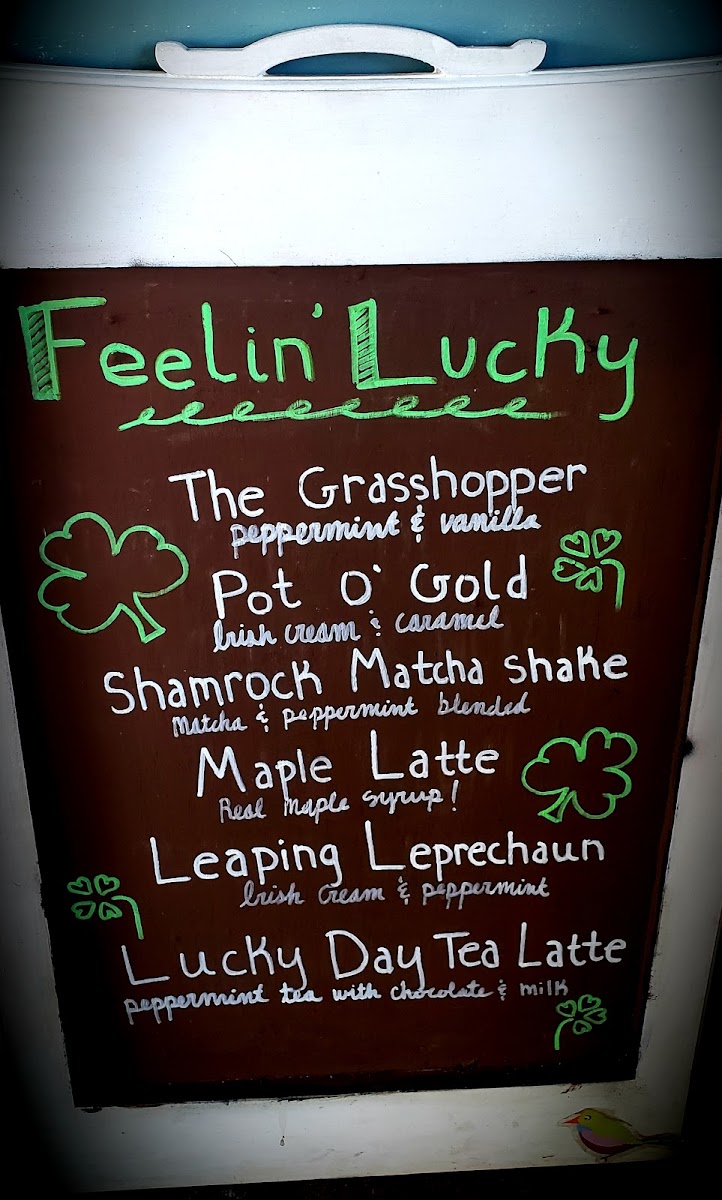 Feelin' Lucky
The Grasshopper
peppermint & vanilla
Pot O' Gold
Irish cream & caramel
Shamrock Matcha shake
Matcha & peppermint blended
Maple Latte
Real maple syrup!
Leaping Leprechaun
Irish Cream & peppermint
Lucky Day Tea Latte
peppermint tea with chocolate & milk